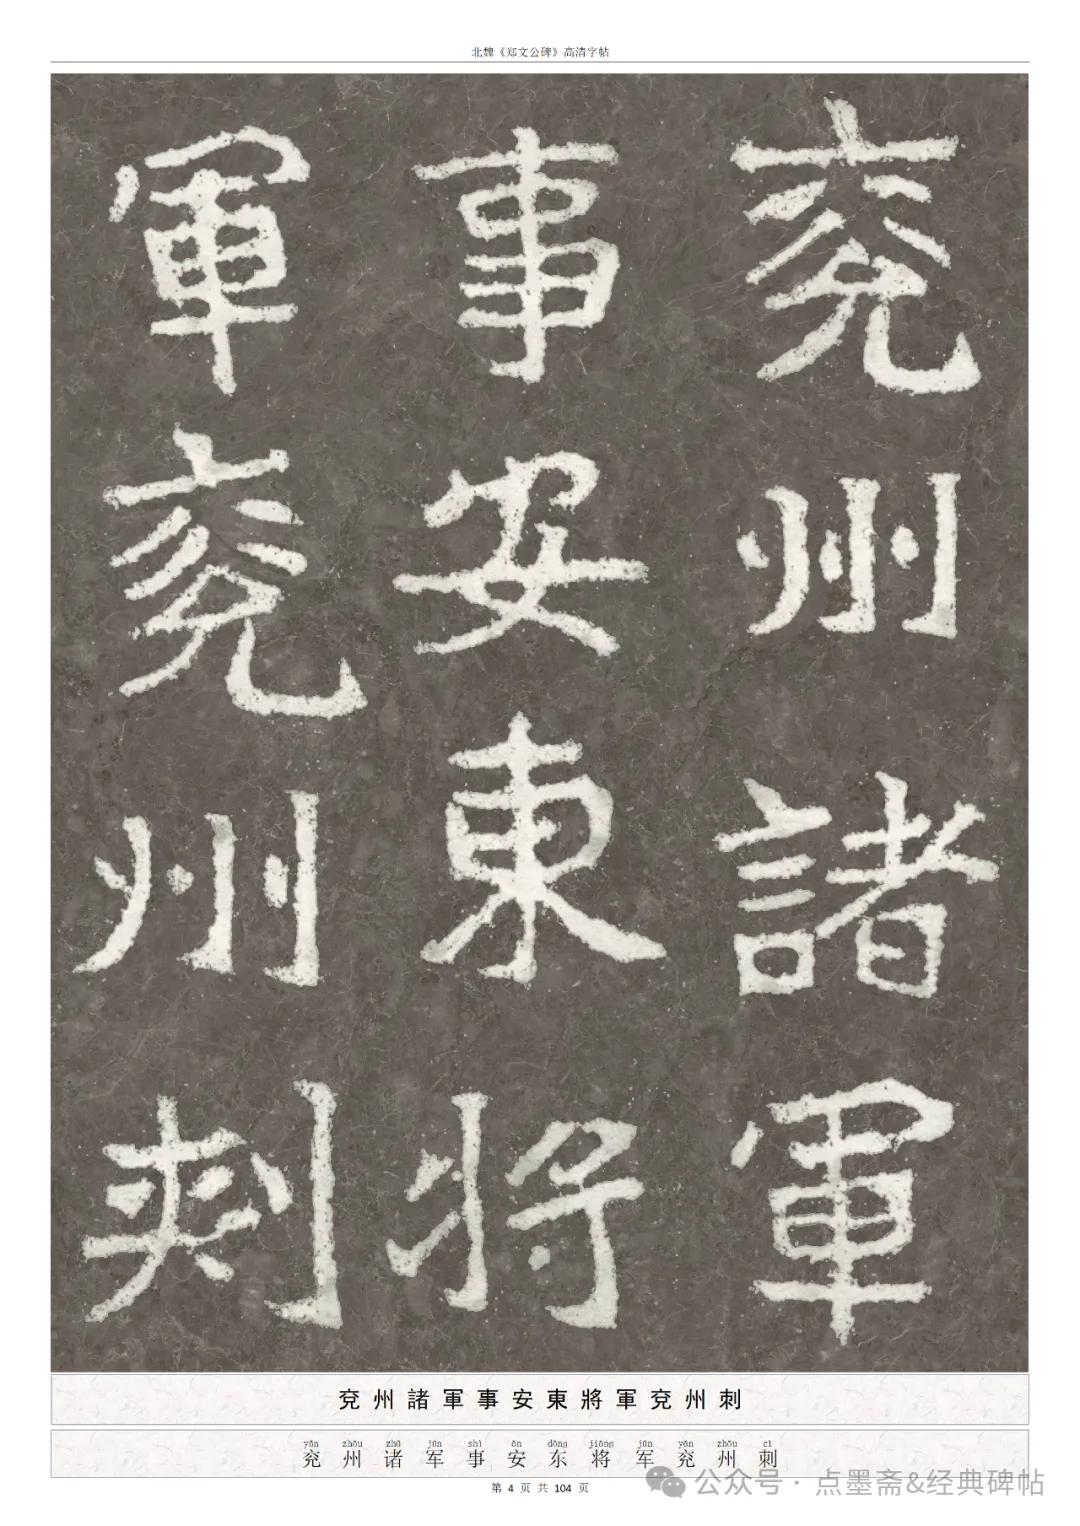 北魏《郑文公碑》高清字帖
兗州諸軍
事安東将
軍兗州刺
兗州諸軍事安東將軍兗州刺
yǎn zhōu zhū jūn shì ān dōng jiāng jūn yǎn zhōu cì
兖州诸军事安东将军兖州刺
第 4 页 共 104 页
公众号 · 点墨斋&经典碑帖